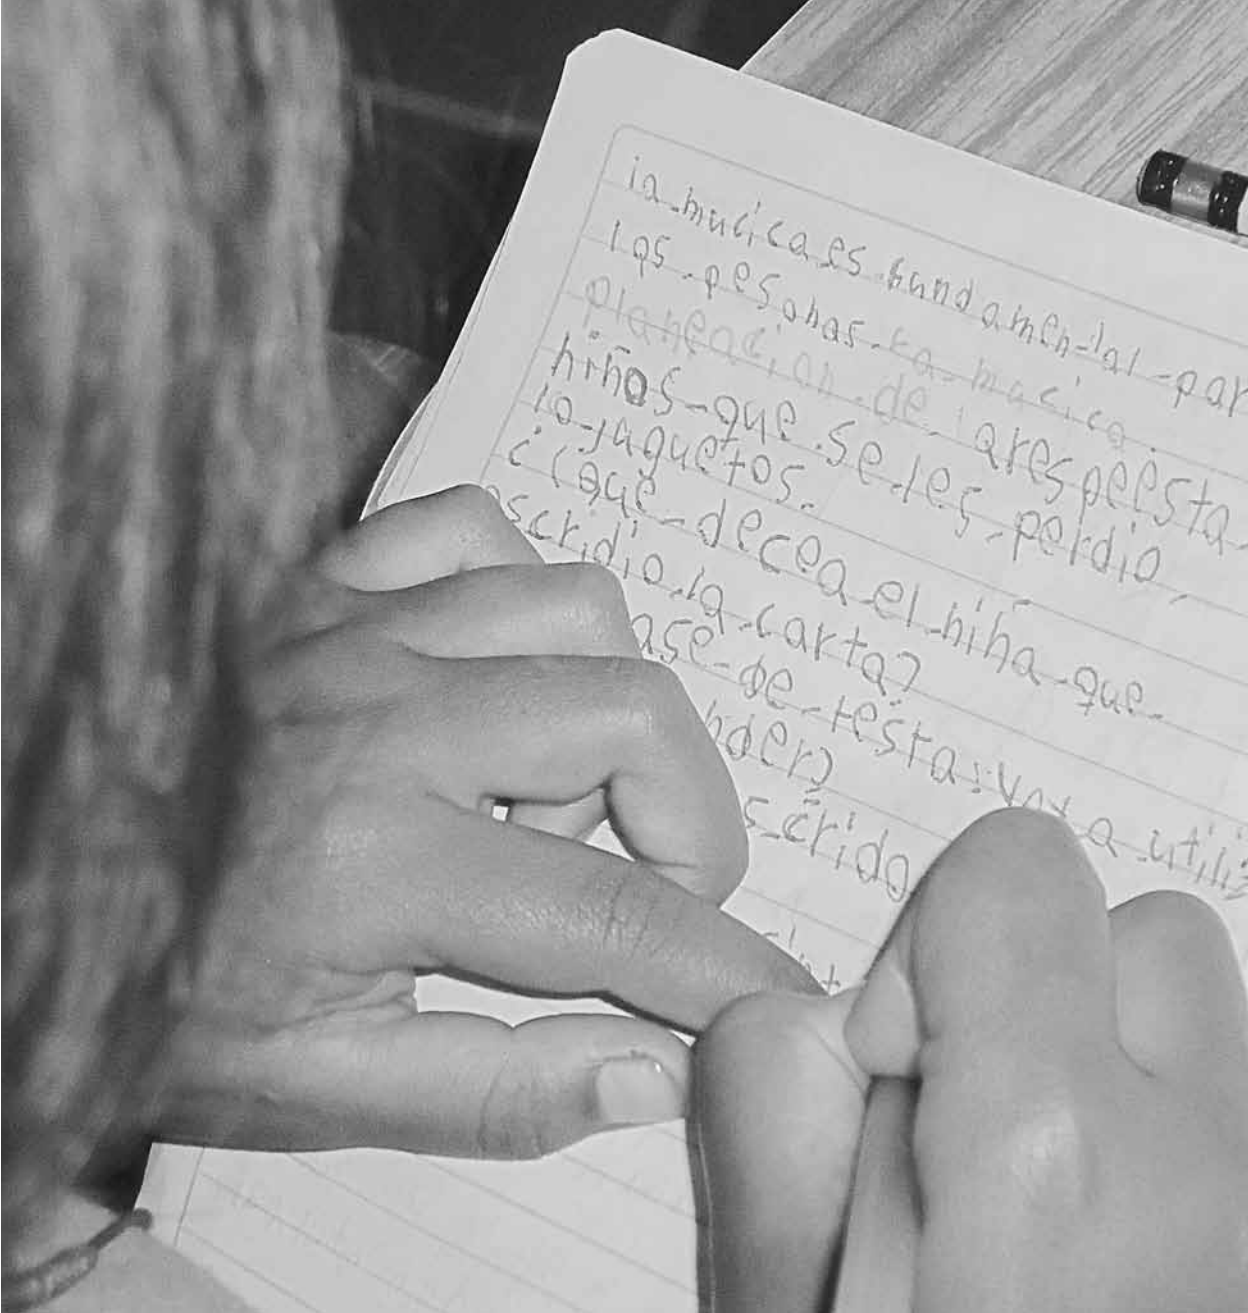 la mucica es fundamental par
las pesonas. la mucica.
planeacion de la respeesta
niños que se les perdio
lo juguetos.
¿(que decea el niña que
escridio la carta?
ase de testa:
nder)
scrido